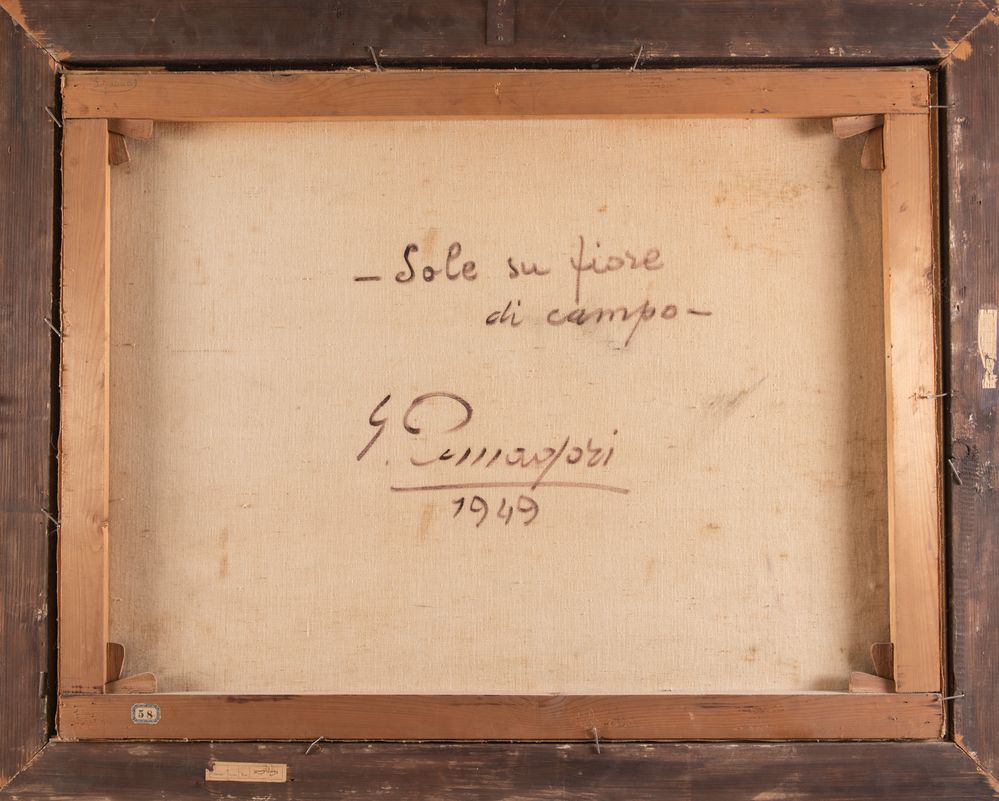 – Sole su fiore
di campo –
G.
1949
58